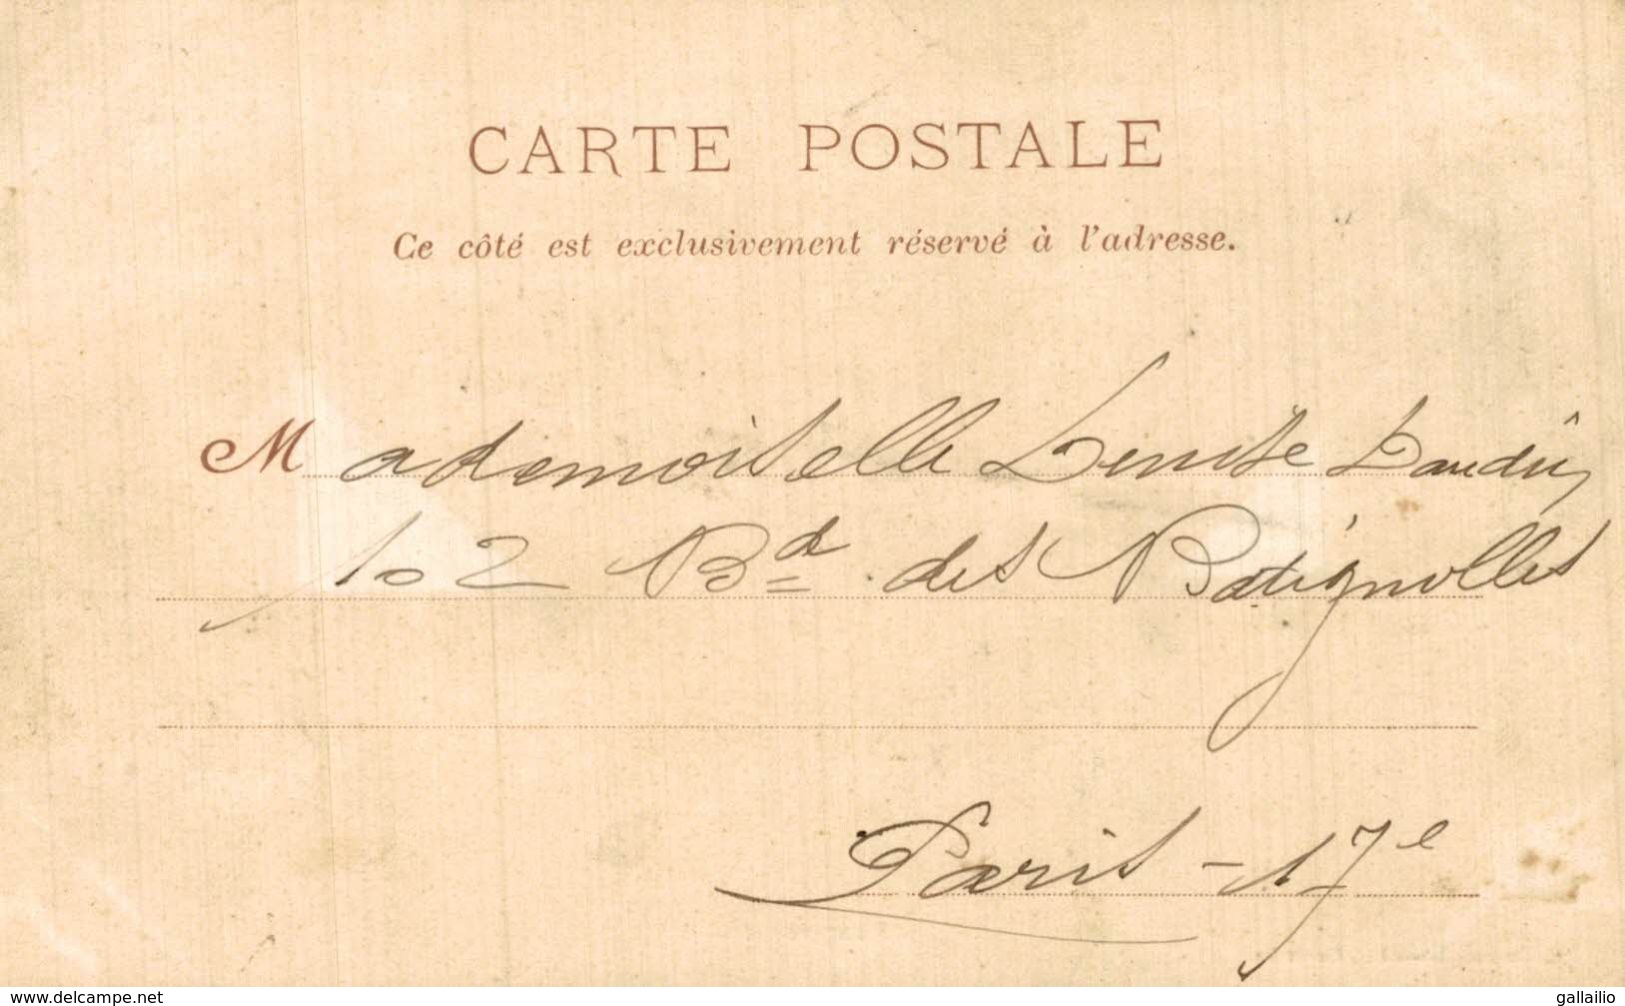 CARTE POSTALE
Ce côté est exclusivement réservé à l'adresse.
Mademoiselle Denise
102 Bd des Batignolles
Paris - 17e
www.delcampe.net
gallailio